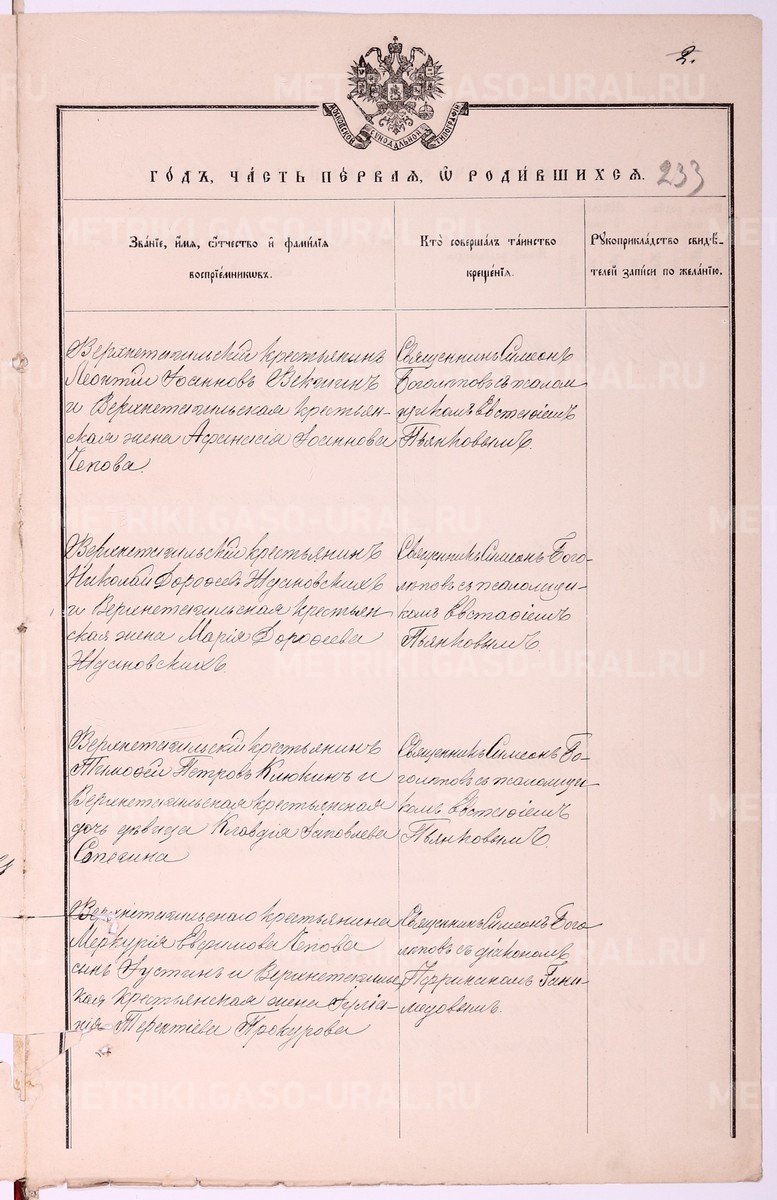 2.
МОСКОВСКОЙ СѴНОДАЛЬНОЙ ТИПОГРАФІИ
ГО́ДЪ, ЧА́СТЬ ПЕ́РВАЯ, Ѿ РОДИ́ВШИХСЯ.
233
Зва́нїе, и҆́мя, ѻ҆́тчество и҆ фамѝлїя
воспрїе́мникѡвъ.
Кто̀ соверша́лъ та́инство
креще́нїя.
Рꙋкоприкла́дство свидѣ́-
телей за́писи по жела́нїю.
Верхнетагильскій крестьянинъ
Леонтій Іоанновъ Векшинъ
и Верхнетагильская крестьян-
ская жена Афанасія Іоаннова
Чепова.
Священникъ Симеонъ
Боголюбовъ съ псалом
щикомъ Евстафіемъ
Пьянковымъ.
Верхнетагильскій крестьянинъ
Николай Дорофеевъ Ждановскихъ
и Верхнетагильская крестьян-
ская жена Марія Дорофеева
Ждановскихъ.
Священникъ Симеонъ Бого-
любовъ съ псаломщи-
комъ Евстафіемъ
Пьянковымъ.
Верхнетагильскій крестьянинъ
Тимофей Петровъ Клюкинъ и
Верхнетагильская крестьянская
дочь дѣвица Клавдія Іаковлева
Сапегина
Священникъ Симеонъ Бо-
голюбовъ съ псаломщи-
комъ Евстафіемъ
Пьянковымъ.
Верхнетагильскаго крестьянина
Меркурія Евфимова Чепова
сынъ Іустинъ и Верхнетагильс
кая крестьянская жена Іуліа-
нія Терентіева Прокурова
Священникъ Симеонъ Бого
любовъ съ діакономъ
Гани-
медовымъ.
METRIKI.GASO-URAL.RU